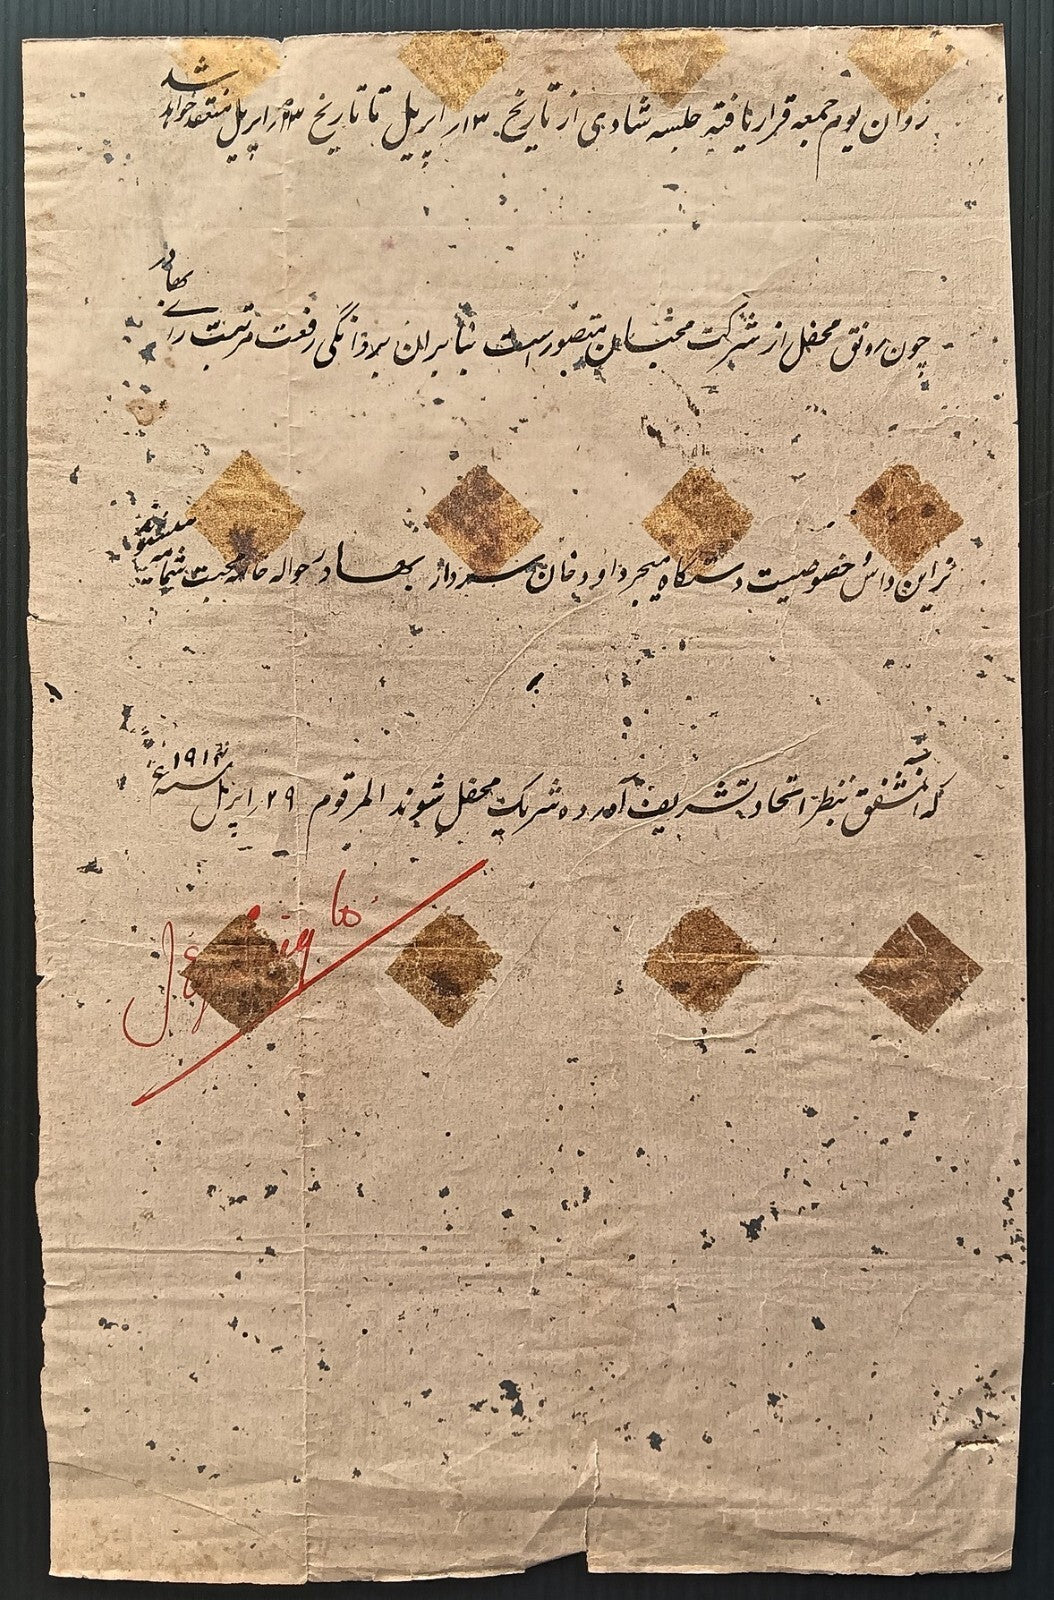 روان یوم جمعه قرار یافته جلسه شادی از تاریخ ۱۳ر اپریل تا تاریخ ۲۳ر اپریل منعقد خواهد شد
چون رونق محفل از شرکت محبان متصور است بنابران بروانگی رفعت مرتبت رائے بهادر
دستگاه میجر داود خان سردار بهادر حواله خامه محبت شمامه
که آنمشفق بنظر اتحاد تشریف آورده شریک محفل شوند المرقوم ۲۹ر اپریل سنه ۱۹۱۲ع